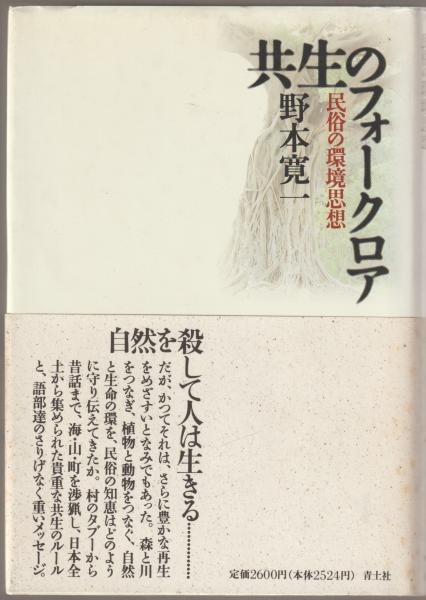 共生のフォークロア
民俗の環境思想
野本寛一
自然を殺して人は生きる…………
だが、かつてそれは、さらに豊かな再生
をめざすいとなみでもあった。森と川
をつなぎ、植物と動物をつなぐ、自然
と生命の環を、民俗の知恵はどのよう
に守り伝えてきたか。村のタブーから
昔話まで、海・山・町を渉猟し、日本全
土から集められた貴重な共生のルール
と、語部達のさりげなく重いメッセージ。
定価2600円(本体2524円) 青土社